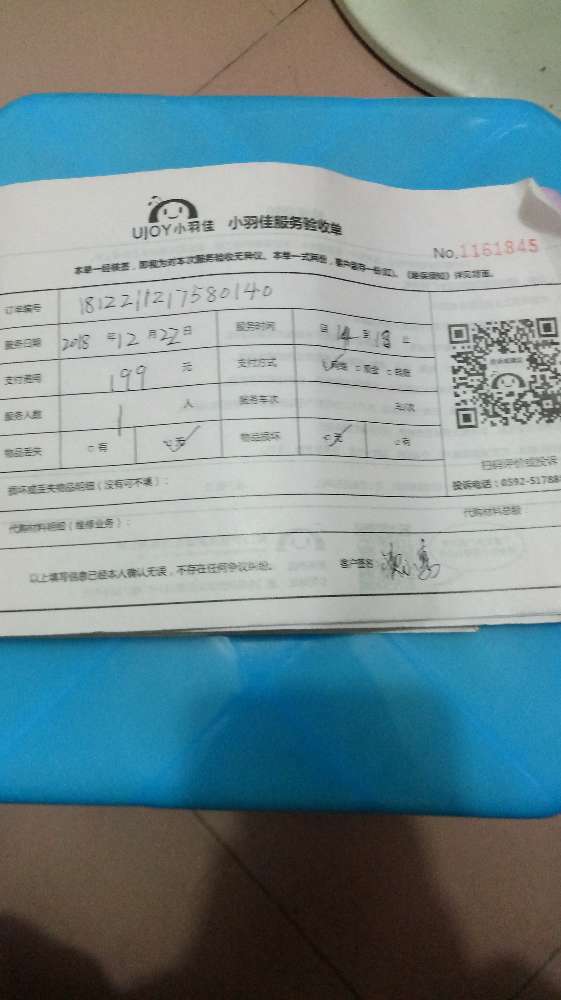 UJOY小羽佳 小羽佳服务验收单
No.1161845
本单一经核签，即视为对本次服务验收无异议。本单一式两份，客户留存一份
详见背面。
订单编号 1812211217580140
服务日期 2018 年 12 月 22 日 服务时间 14 至 18
支付费用 199 元 支付方式 现金
服务人数 1 人 服务车次 车/次
物品丢失 有 无 物品损坏 无 有
扫码评价或投诉
损坏或丢失物品明细（没有可不填）：
投诉电话：0592-51788
代购材料明细（维修业务）： 代购材料总额
以上填写信息已经本人确认无误，不存在任何争议纠纷。 客户签名